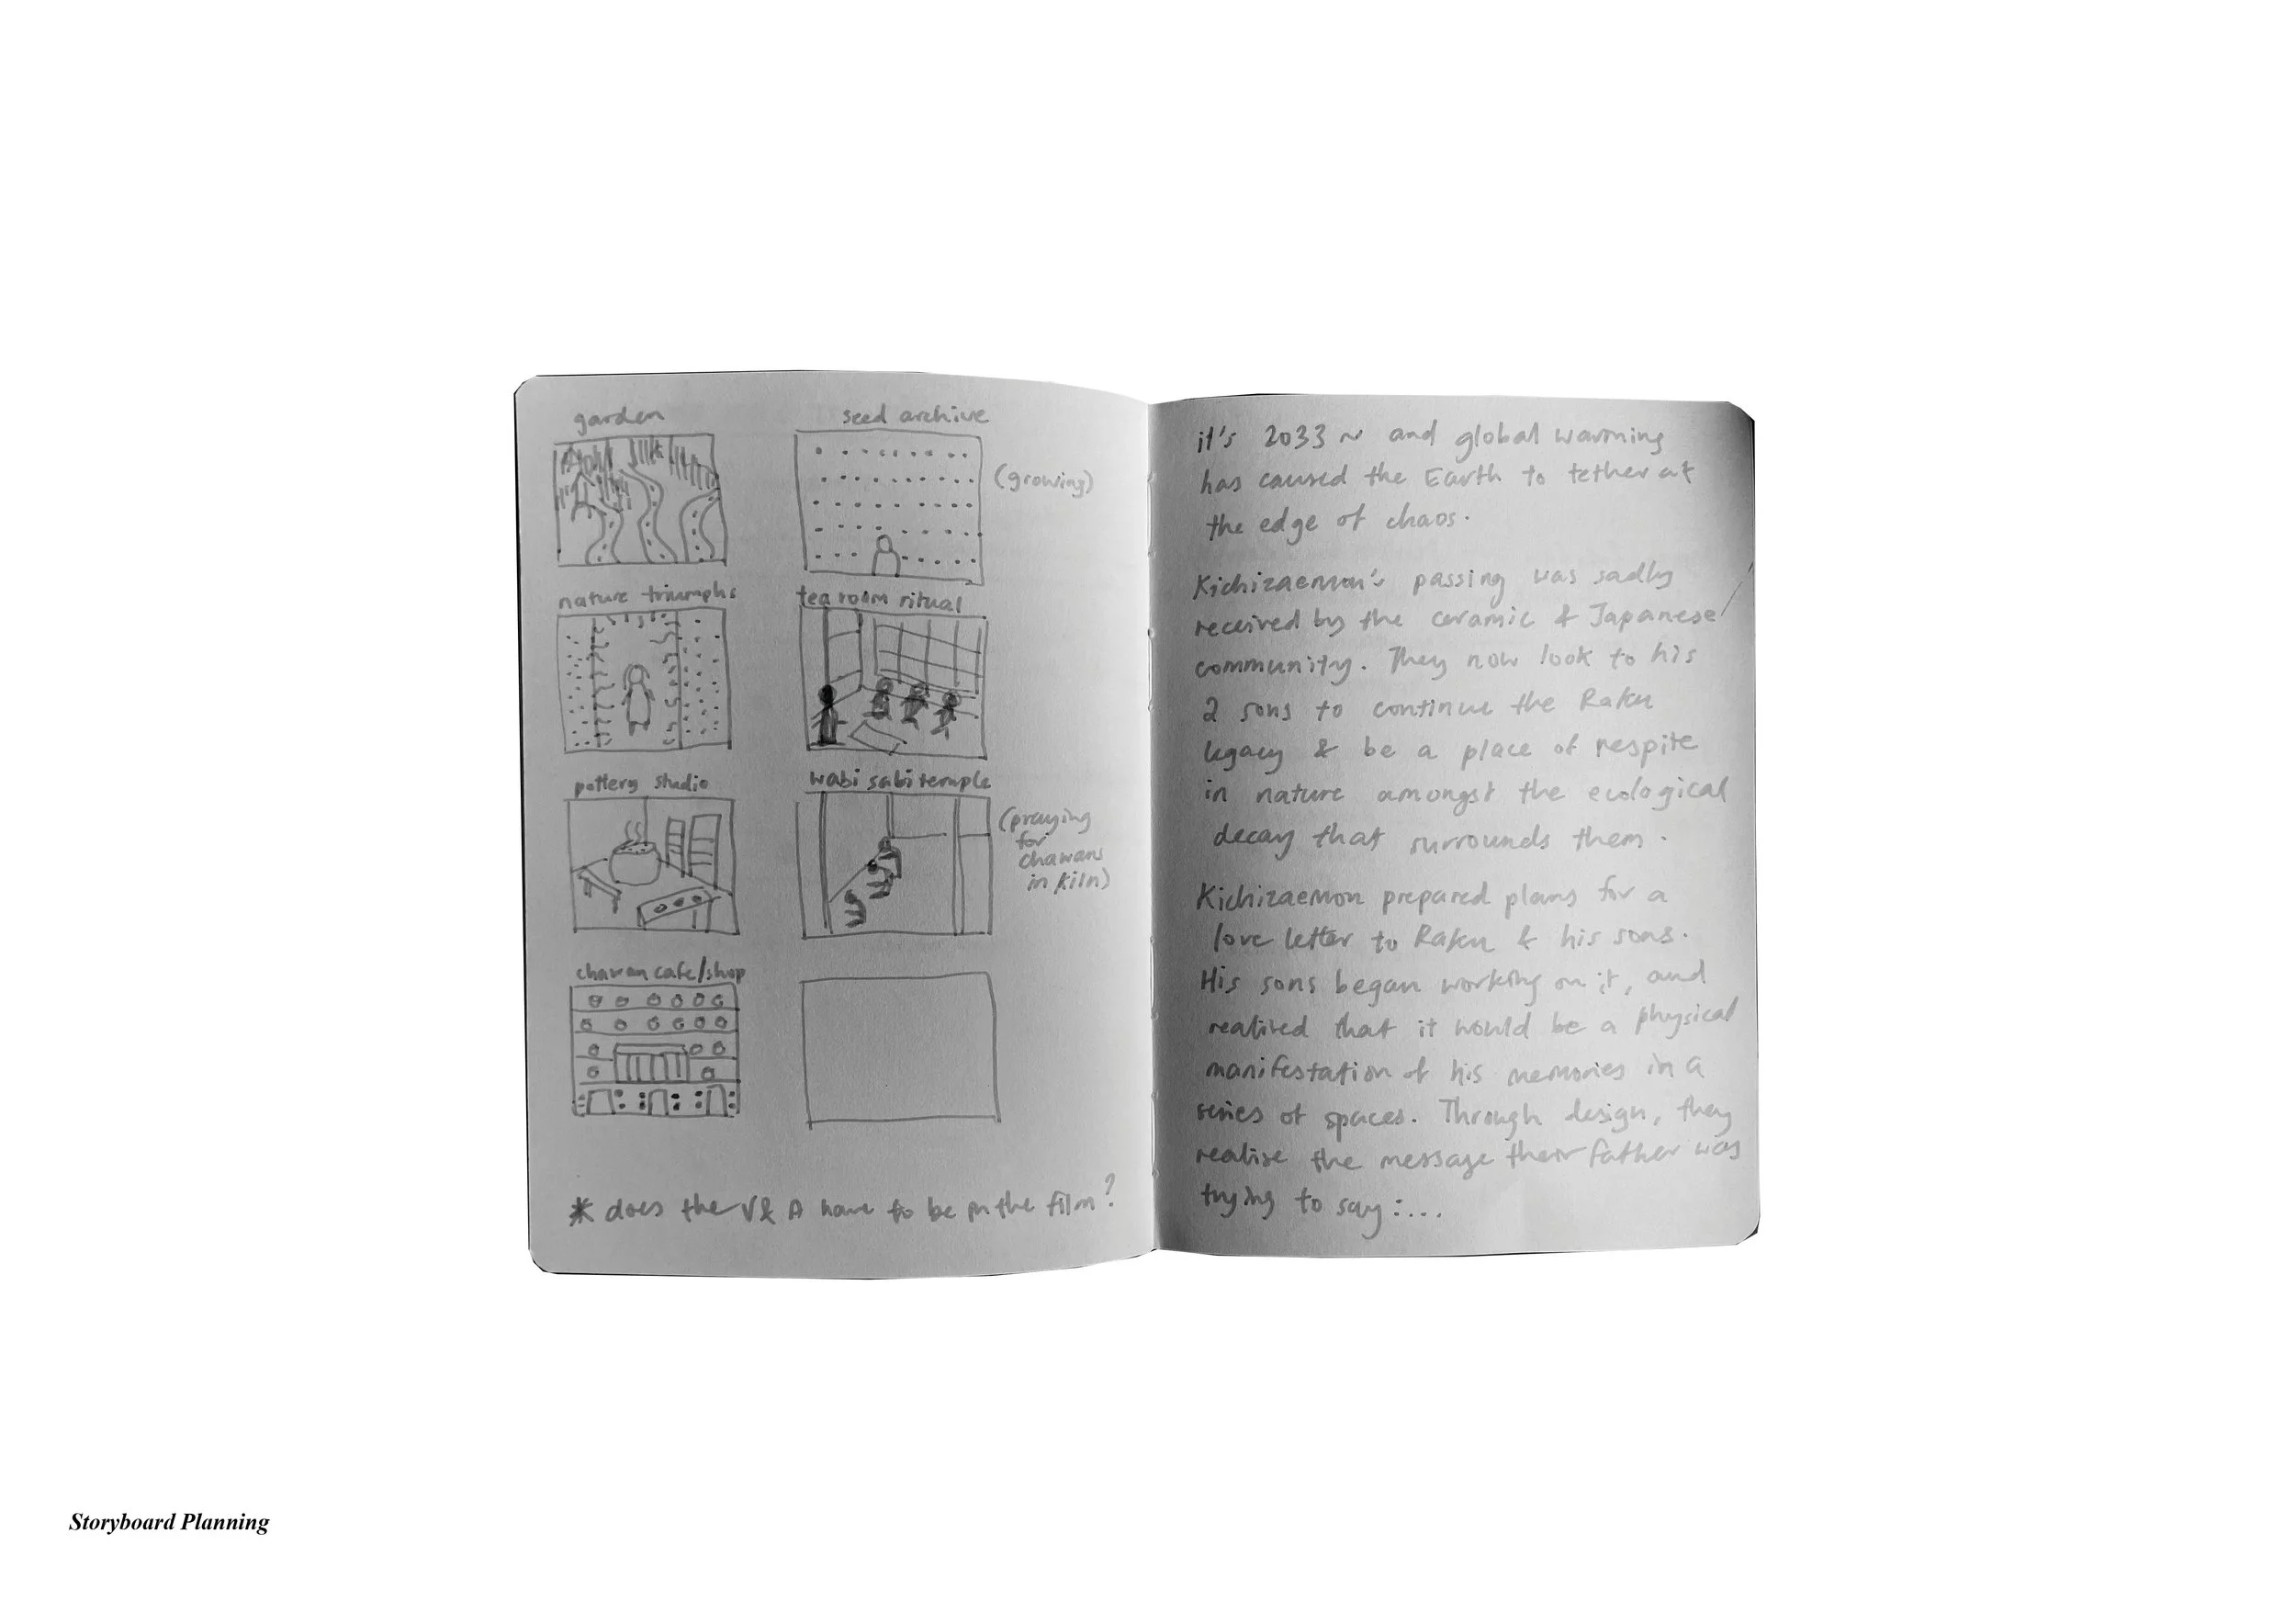 garden
seed archive
(growing)
nature triumphs
tea room ritual
pottery studio
wabi sabi temple
(praying
for
chawans
in kiln)
chawan cafe/shop
* does the V& A have to be in the film?
it's 2033 ~ and global warming
has caused the Earth to tether at
the edge of chaos.
Kichizaemon's passing was sadly
received by the ceramic & Japanese
community. They now look to his
2 sons to continue the Raku
legacy & be a place of respite
in nature amongst the ecological
decay that surrounds them.
Kichizaemon prepared plans for a
love letter to Raku & his sons.
His sons began working on it, and
realised that it would be a physical
manifestation of his memories in a
series of spaces. Through design, they
realise the message their father was
trying to say:...
Storyboard Planning